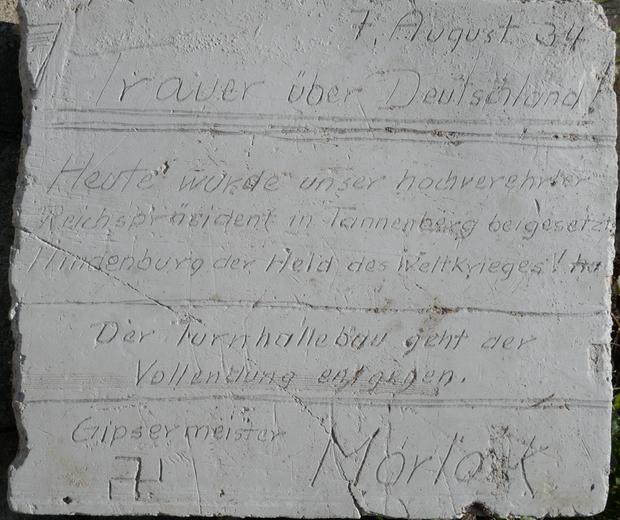 7. August 34
Trauer über Deutschland!
Heute wurde unser hochverehrter
Reichspräsident in Tannenberg beigesetzt
Hindenburg der Held des Weltkrieges!
Der Turnhallebau geht der
Vollendung entgegen.
Gipsermeister Morlok